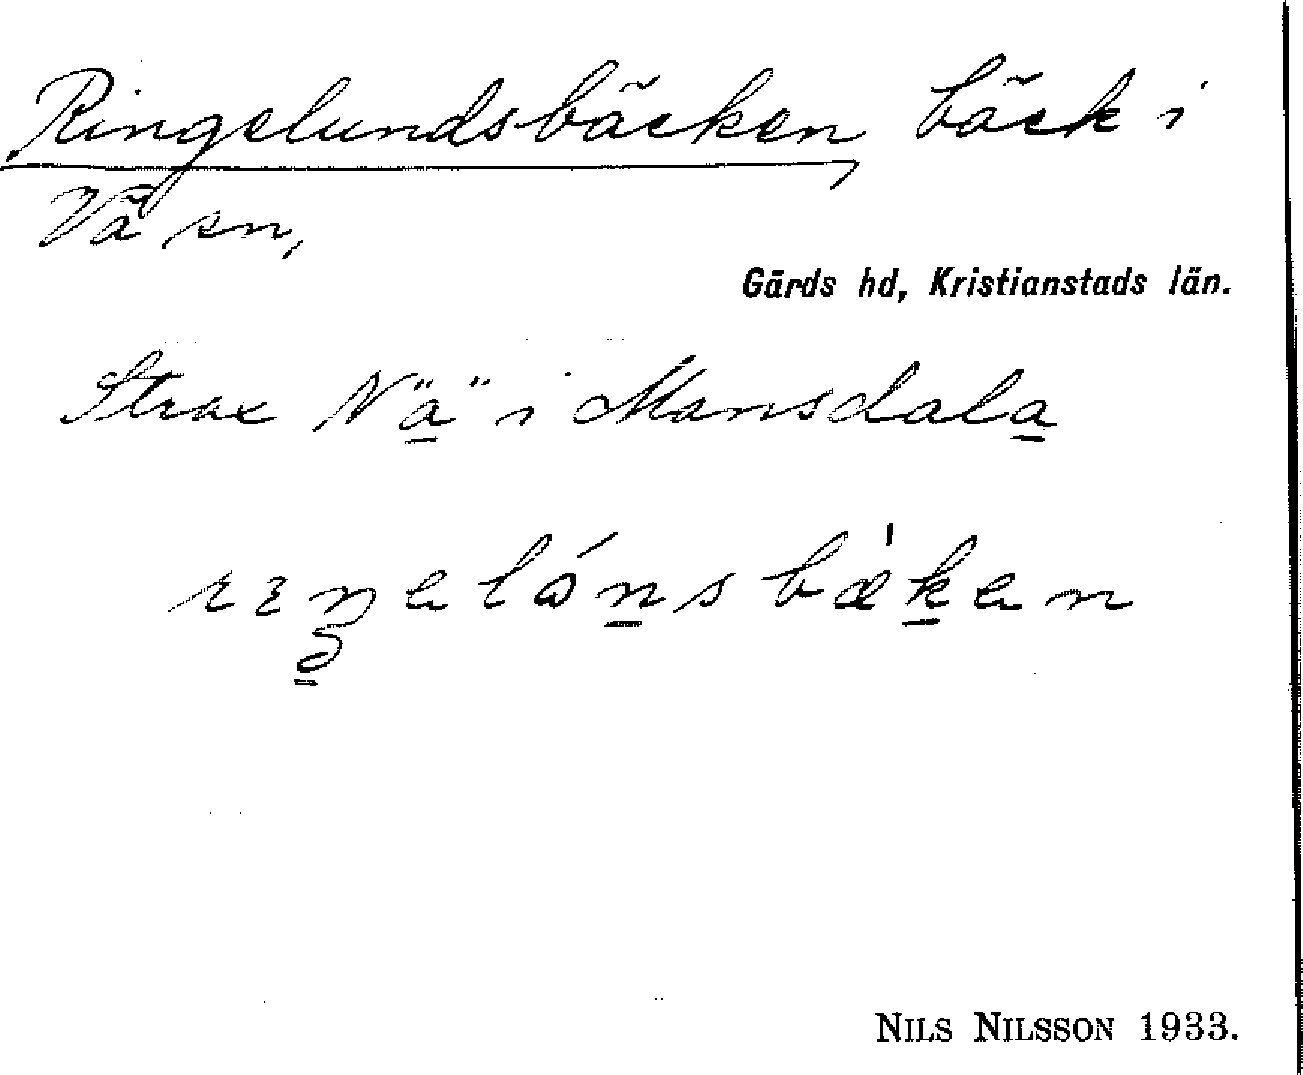 Ringelundsbäcken, bäck i
Vä sn,
Gärds hd, Kristianstads län.
Strax Nä" i Mansdala
reŋelánsbæ̀ken
NILS NILSSON 1933.